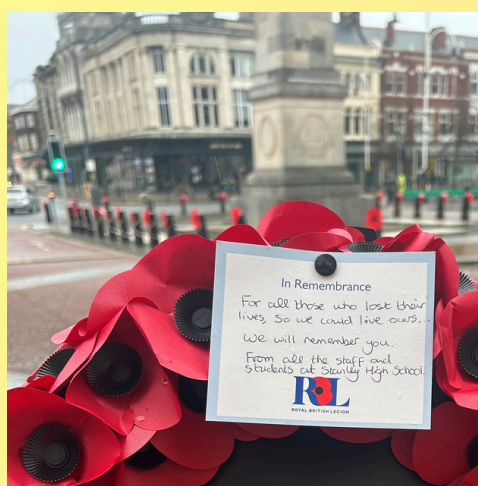 In Remembrance
For all those who lost their
lives, so we could live ours...
We will remember you.
From all the staff and
students at Stanley High School.
RBL
ROYAL BRITISH LEGION